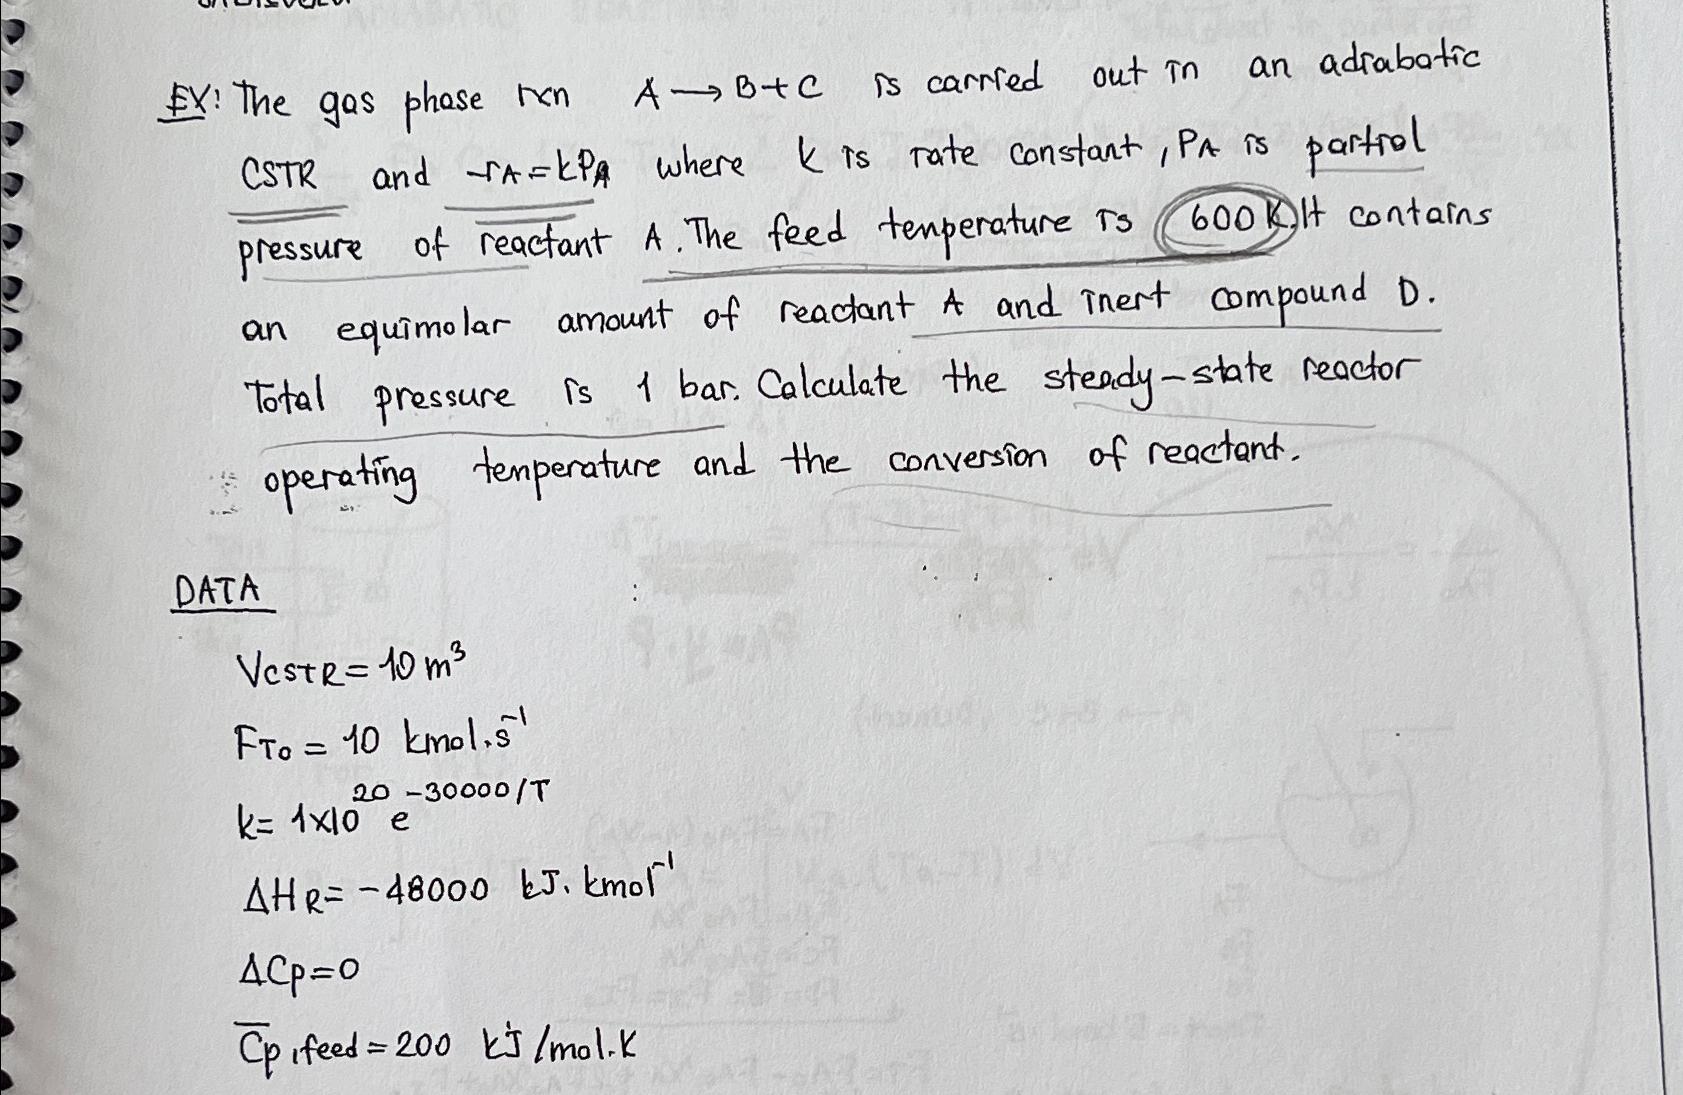 EX: The gas phase rxn A → B + C is carried out in an adiabatic
CSTR and -rA = kPA where k is rate constant, PA is partial
pressure of reactant A. The feed temperature is 600 K. It contains
an equimolar amount of reactant A and inert compound D.
Total pressure is 1 bar. Calculate the steady-state reactor
operating temperature and the conversion of reactant.
DATA
VCSTR = 10 m³
FT0 = 10 kmol.s⁻¹
k = 1x10²⁰ e^(-30000/T)
ΔHR = -48000 kJ. kmol⁻¹
ΔCp = 0
C̅p, feed = 200 kJ/mol.K